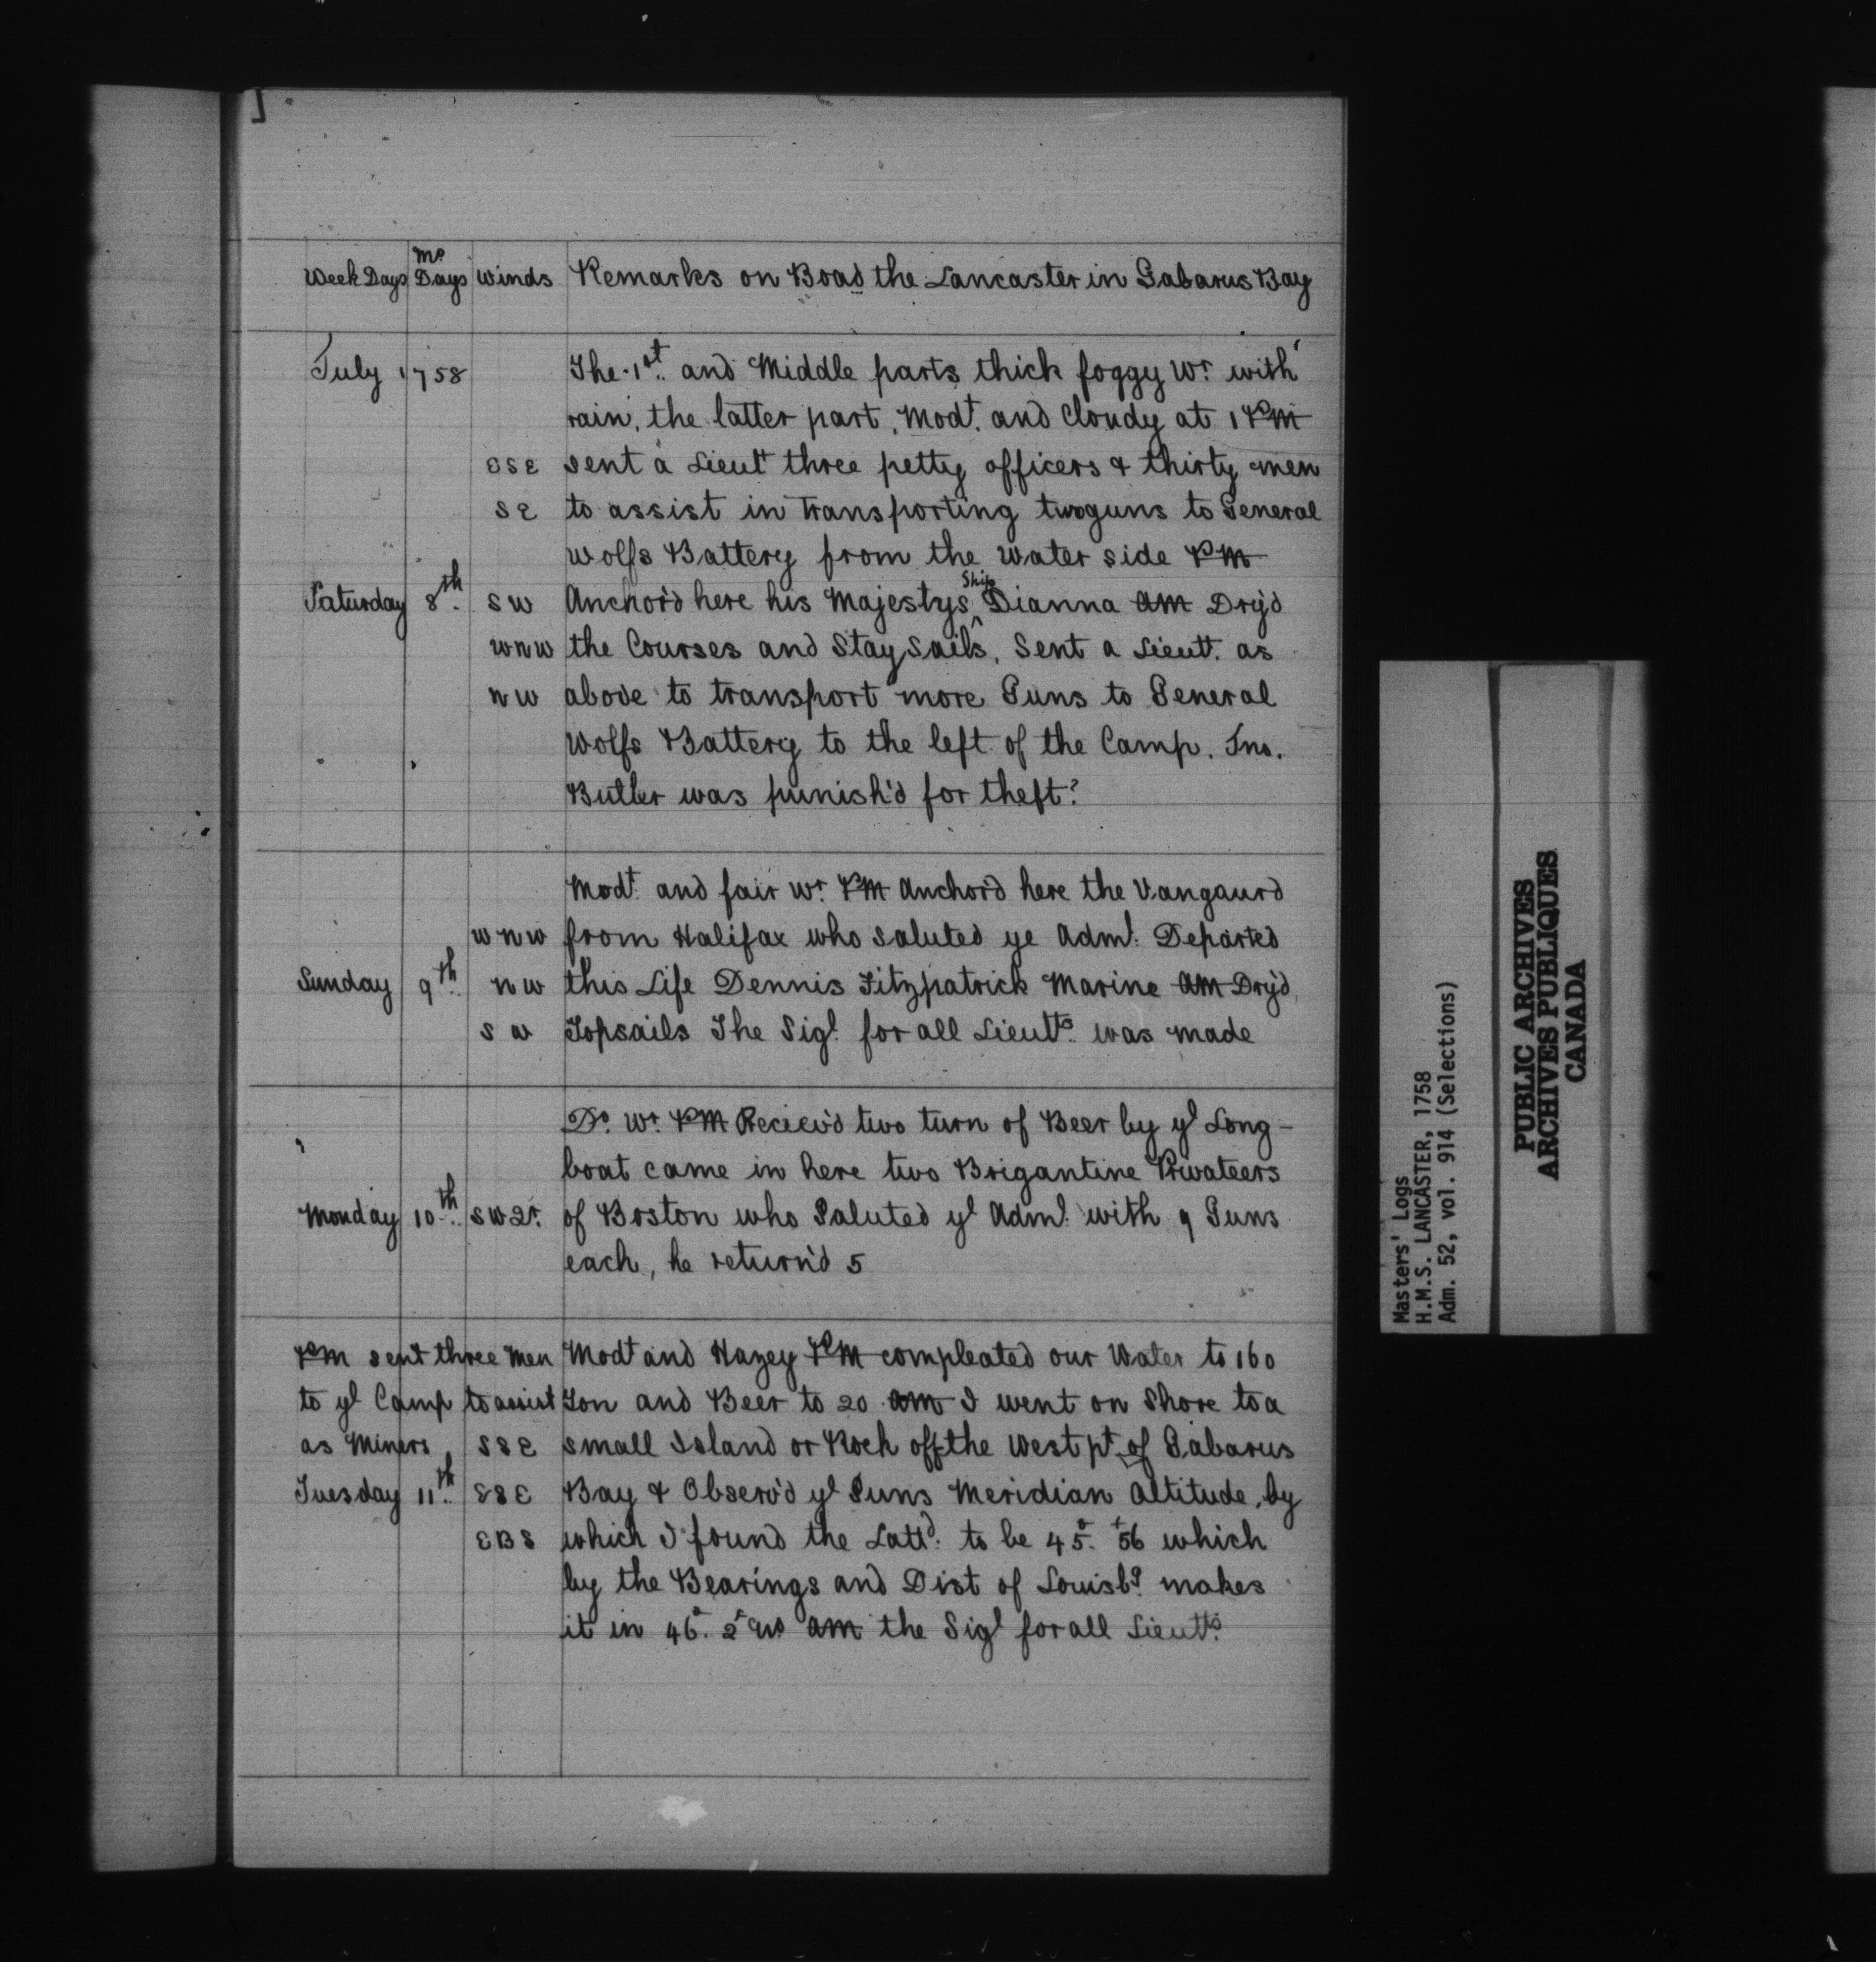 Week Days Mo. Days Winds Remarks on Boad the Lancaster in Gabarus Bay
July 1758 The 1st. and Middle parts thick foggy Wr. with
rain, the latter part, Modt. and Cloudy at 1 PM
ESE sent a Lieut three petty officers & thirty men
SE to assist in transporting two guns to General
Wolfs Battery from the water side PM
Saturday 8th. SW Anchor'd here his Majestys Ship Dianna AM Dry'd
WNW the Courses and Stay Sails, Sent a Lieutt. as
NW above to transport more Guns to General
Wolfs Battery to the left of the Camp. Jno.
Butler was punish'd for theft?
Modt. and fair Wr. PM Anchor'd here the Vangaurd
WNW from Halifax who saluted ye Adml. Departed
Sunday 9th. NW this Life Dennis Fitzpatrick Marine AM Dry'd
SW Topsails The Sigl. for all Lieutts. was made
Do. Wr. PM Reciev'd two turn of Beer by ye Long-
boat came in here two Brigantine Privateers
Monday 10th. SW of Boston who Saluted ye Adml. with 9 Guns
each, he return'd 5
PM sent three Men Modt and Hazey PM compleated our Water to 160
to ye Camp to assist Ton and Beer to 20 AM I went on Shore to a
as Miners SSE small Island or Rock off the West pt. of Gabarus
Tuesday 11th. ESE Bay & Observ'd ye Suns Meridian Altitude, by
EBS which I found the Lattd. to be 45. 56 which
by the Bearings and Dist of Louisbg. makes
it in 46. 2 AM the Sigl for all Lieutts.
Masters' Logs
H.M.S. LANCASTER, 1758
Adm. 52, vol. 914 (Selections)
PUBLIC ARCHIVES
ARCHIVES PUBLIQUES
CANADA